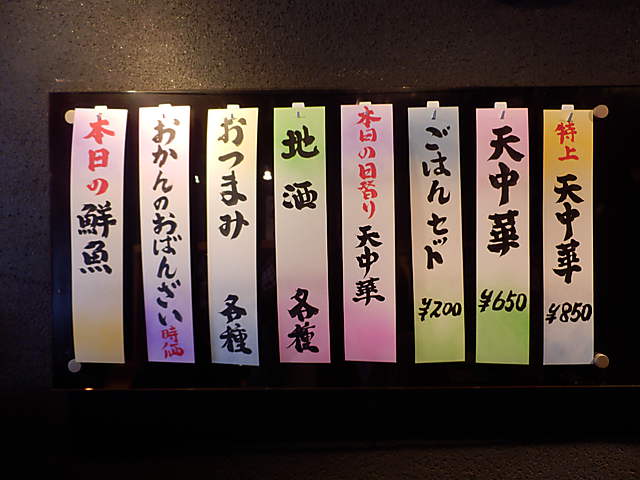 特上 天中華 ¥850
天中華 ¥650
ごはんセット ¥200
本日の日替り 天中華
地酒 各種
おつまみ 各種
おかんのおばんざい 時価
本日の鮮魚